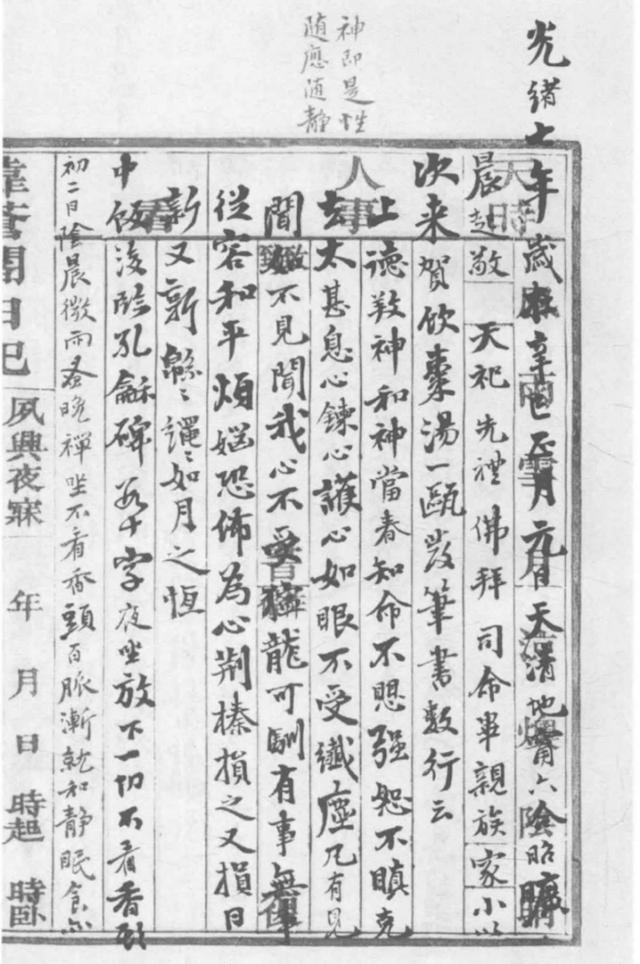 神即是性
随應随静
光緒七年歲在辛巳正月元日天清地甯六陰昭曠
晨起敬天祀先禮佛拜司命畢親族家小以
次来賀飲棗湯一甌發筆書数行云
上德敦神和神當春知命不思强恕不瞋克
去太甚息心鍊心護心如眼不受纖塵凡有見
聞如不見聞我心不受獰龍可馴有事無事
從容和平煩惱恐怖為心荆榛損之又損日
新又新緜緜繩繩如月之恆
中飯後臨孔龢碑若干字夜坐放下一切不看香頭
初二日陰晨微雨至晚禪坐不看香頭百脈漸就和静眠食亦
閣日記
夙興夜寐 年 月 日 時起 時卧
天時
人事